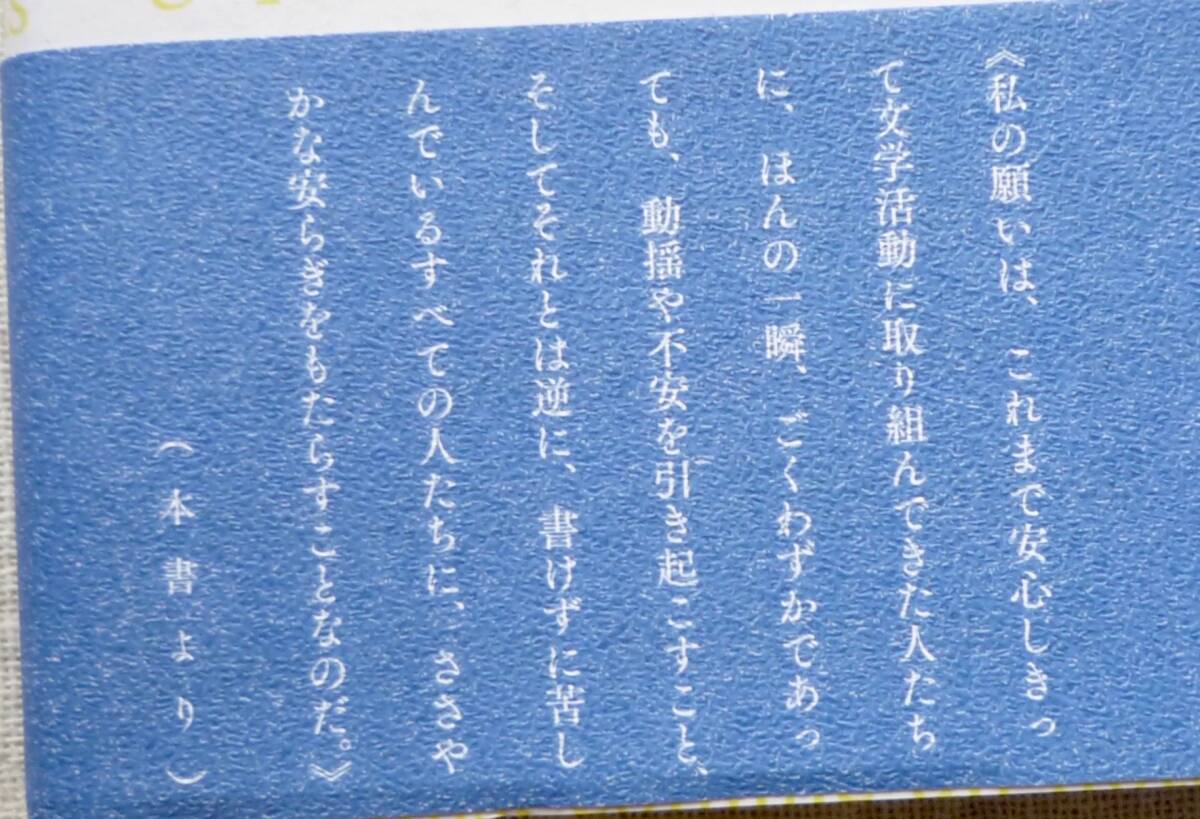 《私の願いは、これまで安心しきっ
て文学活動に取り組んできた人たち
に、ほんの一瞬、ごくわずかであっ
ても、動揺や不安を引き起こすこと、
そしてそれとは逆に、書けずに苦し
んでいるすべての人たちに、ささや
かな安らぎをもたらすことなのだ。》
（本書より）